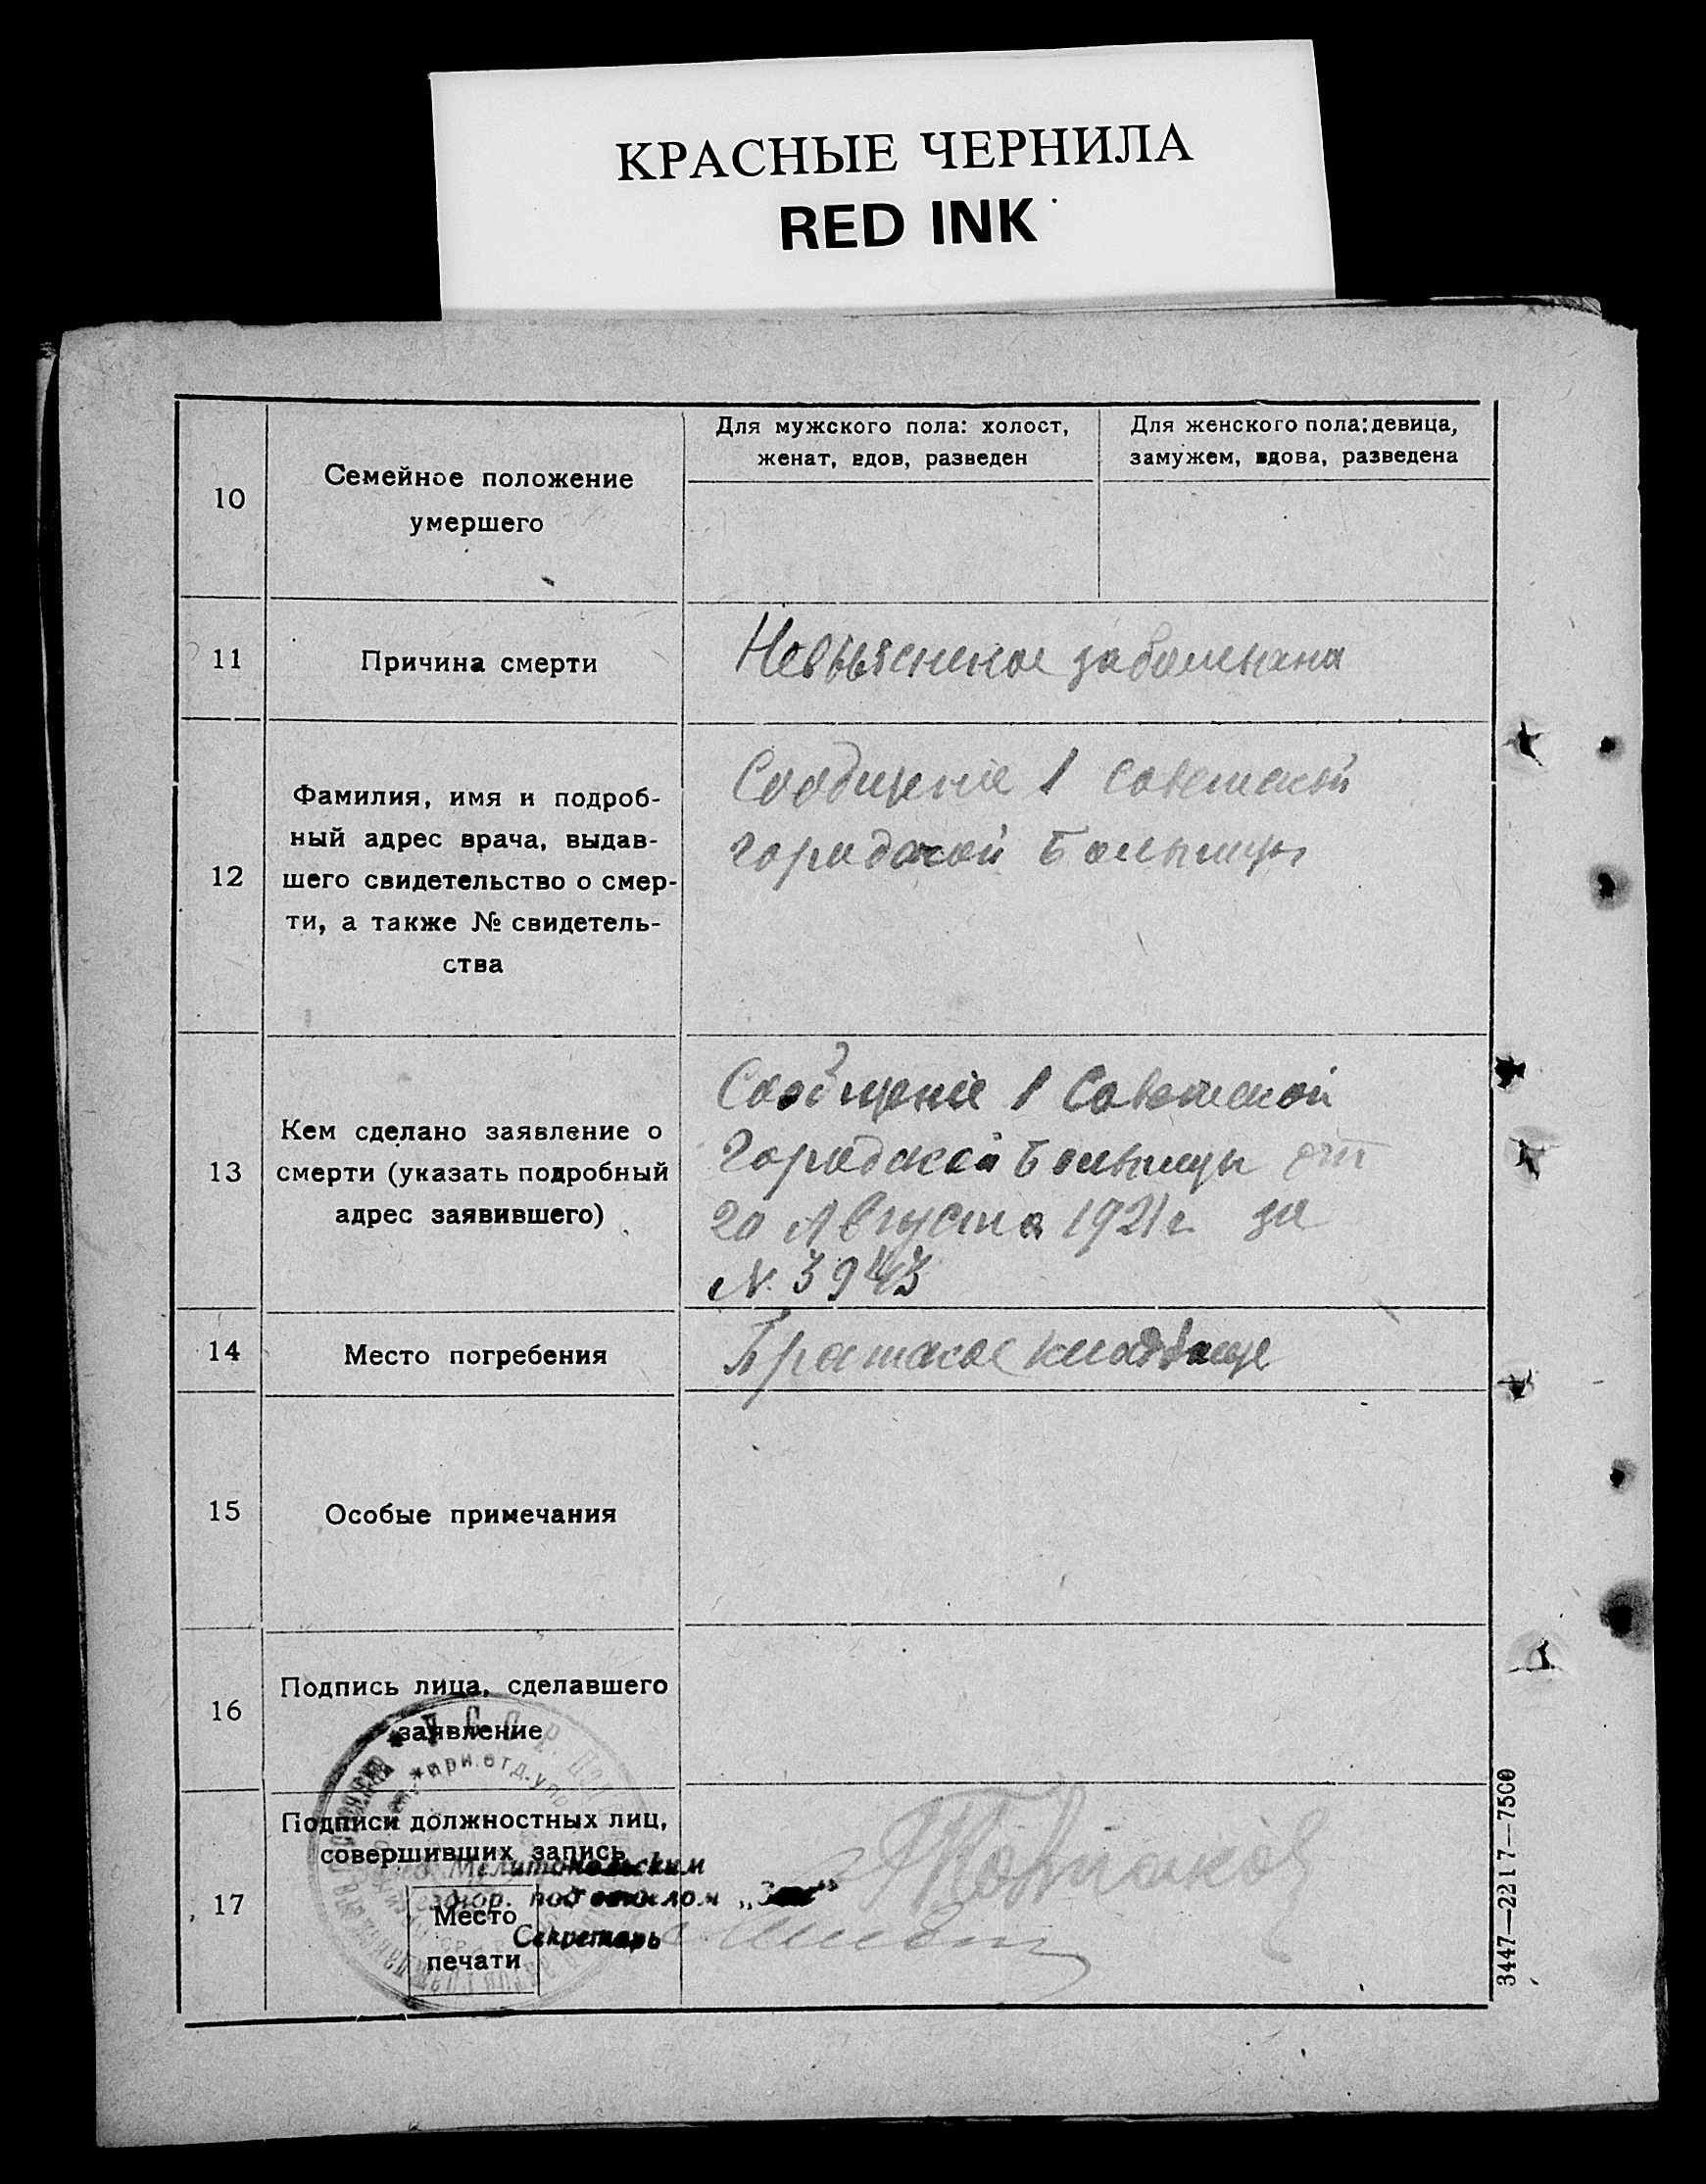 КРАСНЫЕ ЧЕРНИЛА
RED INK
10
Семейное положение
умершего
Для мужского пола: холост,
женат, вдов, разведен
Для женского пола: девица,
замужем, вдова, разведена
11
Причина смерти
Невыясненное
12
Фамилия, имя и подроб-
ный адрес врача, выдав-
шего свидетельство о смер-
ти, а также № свидетель-
ства
Сообщение 1 Советской
городской Больницы
13
Кем сделано заявление о
смерти (указать подробный
адрес заявившего)
Сообщение 1 Советской
Городской Больницы от
20 Августа 1921 г за
№ 3943
14
Место погребения
Братское кладбище
15
Особые примечания
16
Подпись лица, сделавшего
заявление
17
Подписи должностных лиц,
совершивших запись
Мелитопольским
под
Секретарь
Место
печати
3447—2217—7500